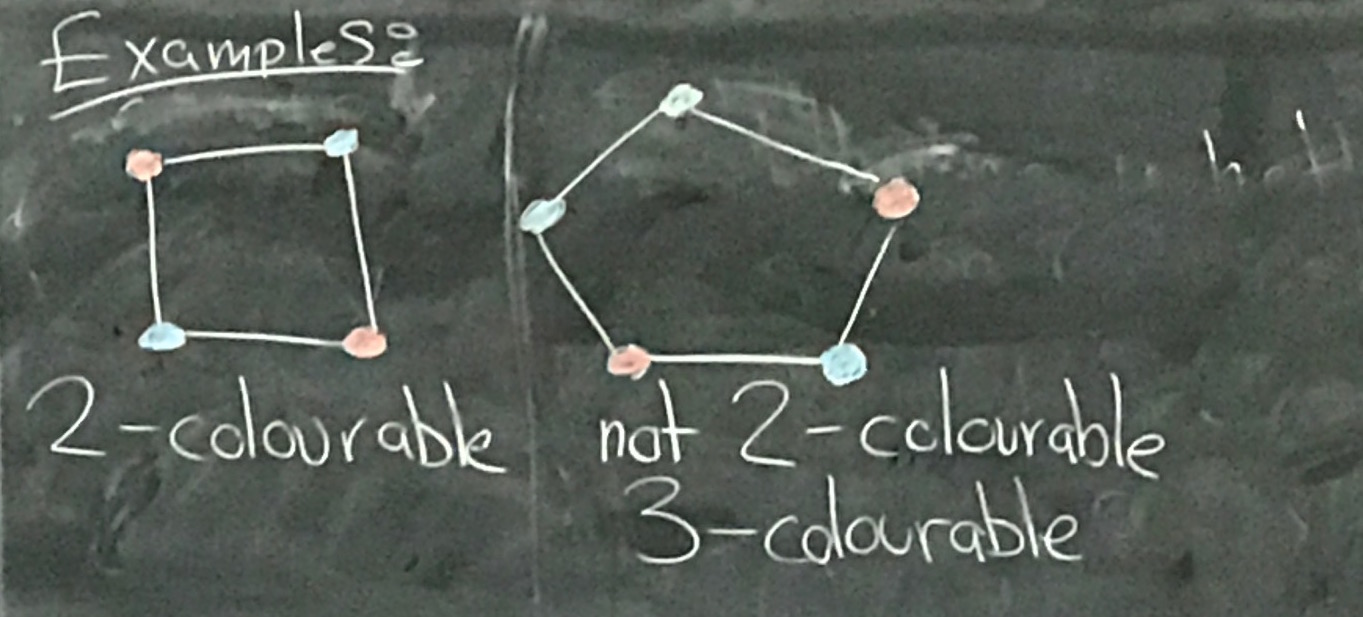 Examples:
2-colourable
not 2-colourable
3-colourable